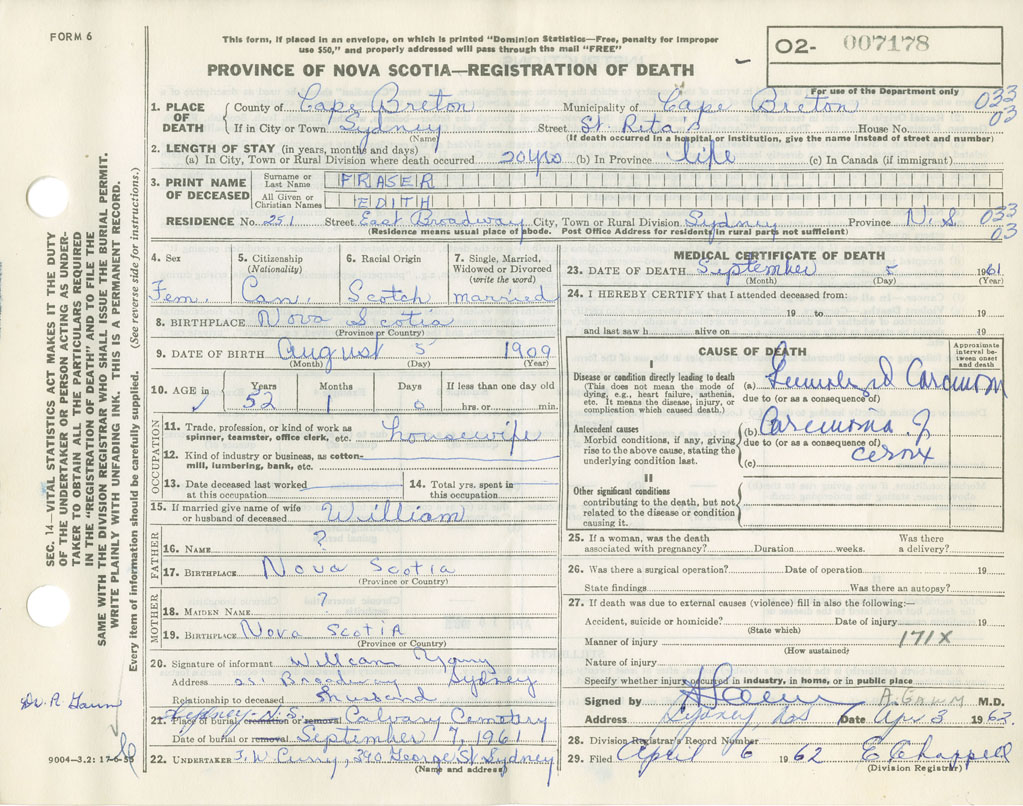 FORM 6
This form, if placed in an envelope, on which is printed "Dominion Statistics—Free, penalty for improper
use $50," and properly addressed will pass through the mail "FREE"
O2- 007178
PROVINCE OF NOVA SCOTIA—REGISTRATION OF DEATH
For use of the Department only
1. PLACE OF DEATH County of Cape Breton Municipality of Cape Breton 033
If in City or Town Sydney Street St. Rita's House No. 03
(Name) (If death occurred in a hospital or institution, give the name instead of street and number)
2. LENGTH OF STAY (in years, months and days)
(a) In City, Town or Rural Division where death occurred 20 yrs (b) In Province life (c) In Canada (if immigrant)
3. PRINT NAME OF DECEASED Surname or Last Name FRASER
All Given or Christian Names EDITH
RESIDENCE No. 251 Street East Broadway City, Town or Rural Division Sydney Province N.S 033
(Residence means usual place of abode. Post Office Address for residents in rural parts not sufficient) 03
4. Sex Fem.
5. Citizenship (Nationality) Can.
6. Racial Origin Scotch
7. Single, Married, Widowed or Divorced (write the word) married
8. BIRTHPLACE Nova Scotia
(Province or Country)
9. DATE OF BIRTH August 5 1909
(Month) (Day) (Year)
10. AGE in Years Months Days If less than one day old
✓ 52 1 0 hrs. or min.
OCCUPATION
11. Trade, profession, or kind of work as
spinner, teamster, office clerk, etc. housewife
12. Kind of industry or business, as cotton-
mill, lumbering, bank, etc.
13. Date deceased last worked
at this occupation
14. Total yrs. spent in
this occupation
15. If married give name of wife
or husband of deceased William
FATHER
16. NAME ?
17. BIRTHPLACE Nova Scotia
(Province or Country)
MOTHER
18. MAIDEN NAME ?
19. BIRTHPLACE Nova Scotia
(Province or Country)
20. Signature of informant William
Address Broadway Sydney
Relationship to deceased Husband
Sydney N.S.
21. Place of burial cremation or removal Calvary Cemetery
Date of burial or removal September 7, 1961
22. UNDERTAKER F. W. Curry, 390 George St Sydney
(Name and address)
MEDICAL CERTIFICATE OF DEATH
23. DATE OF DEATH September 5 1961
(Month) (Day) (Year)
24. I HEREBY CERTIFY that I attended deceased from:
19 to 19
and last saw h alive on 19
CAUSE OF DEATH
Approximate interval between onset and death
I
Disease or condition directly leading to death (a) Generalized Carcinoma
(This does not mean the mode of
dying, e.g., heart failure, asthenia,
etc. It means the disease, injury, or
complication which caused death.)
due to (or as a consequence of)
Antecedent causes (b) Carcinoma of
Morbid conditions, if any, giving
rise to the above cause, stating the
underlying condition last.
due to (or as a consequence of) cervix
(c)
II
Other significant conditions
contributing to the death, but not
related to the disease or condition
causing it.
25. If a woman, was the death Was there
associated with pregnancy? Duration weeks. a delivery?
26. Was there a surgical operation? Date of operation 19
State findings Was there an autopsy?
27. If death was due to external causes (violence) fill in also the following:—
Accident, suicide or homicide? Date of injury 19
(State which)
Manner of injury 171X
(How sustained)
Nature of injury
Specify whether injury occurred in industry, in home, or in public place
Signed by A. Gaum M.D.
Address Sydney NS Date Apr 3 1962
28. Division Registrar's Record Number
29. Filed April 6 1962 E Chappell
(Division Registrar)
SEC. 14—VITAL STATISTICS ACT MAKES IT THE DUTY
OF THE UNDERTAKER OR PERSON ACTING AS UNDER-
TAKER TO OBTAIN ALL THE PARTICULARS REQUIRED
IN THE "REGISTRATION OF DEATH" AND TO FILE THE
SAME WITH THE DIVISION REGISTRAR WHO SHALL ISSUE THE BURIAL PERMIT.
WRITE PLAINLY WITH UNFADING INK. THIS IS A PERMANENT RECORD.
Every item of information should be carefully supplied. (See reverse side for instructions.)
Dr. A Gaum
9004—3.2: 17-6-59